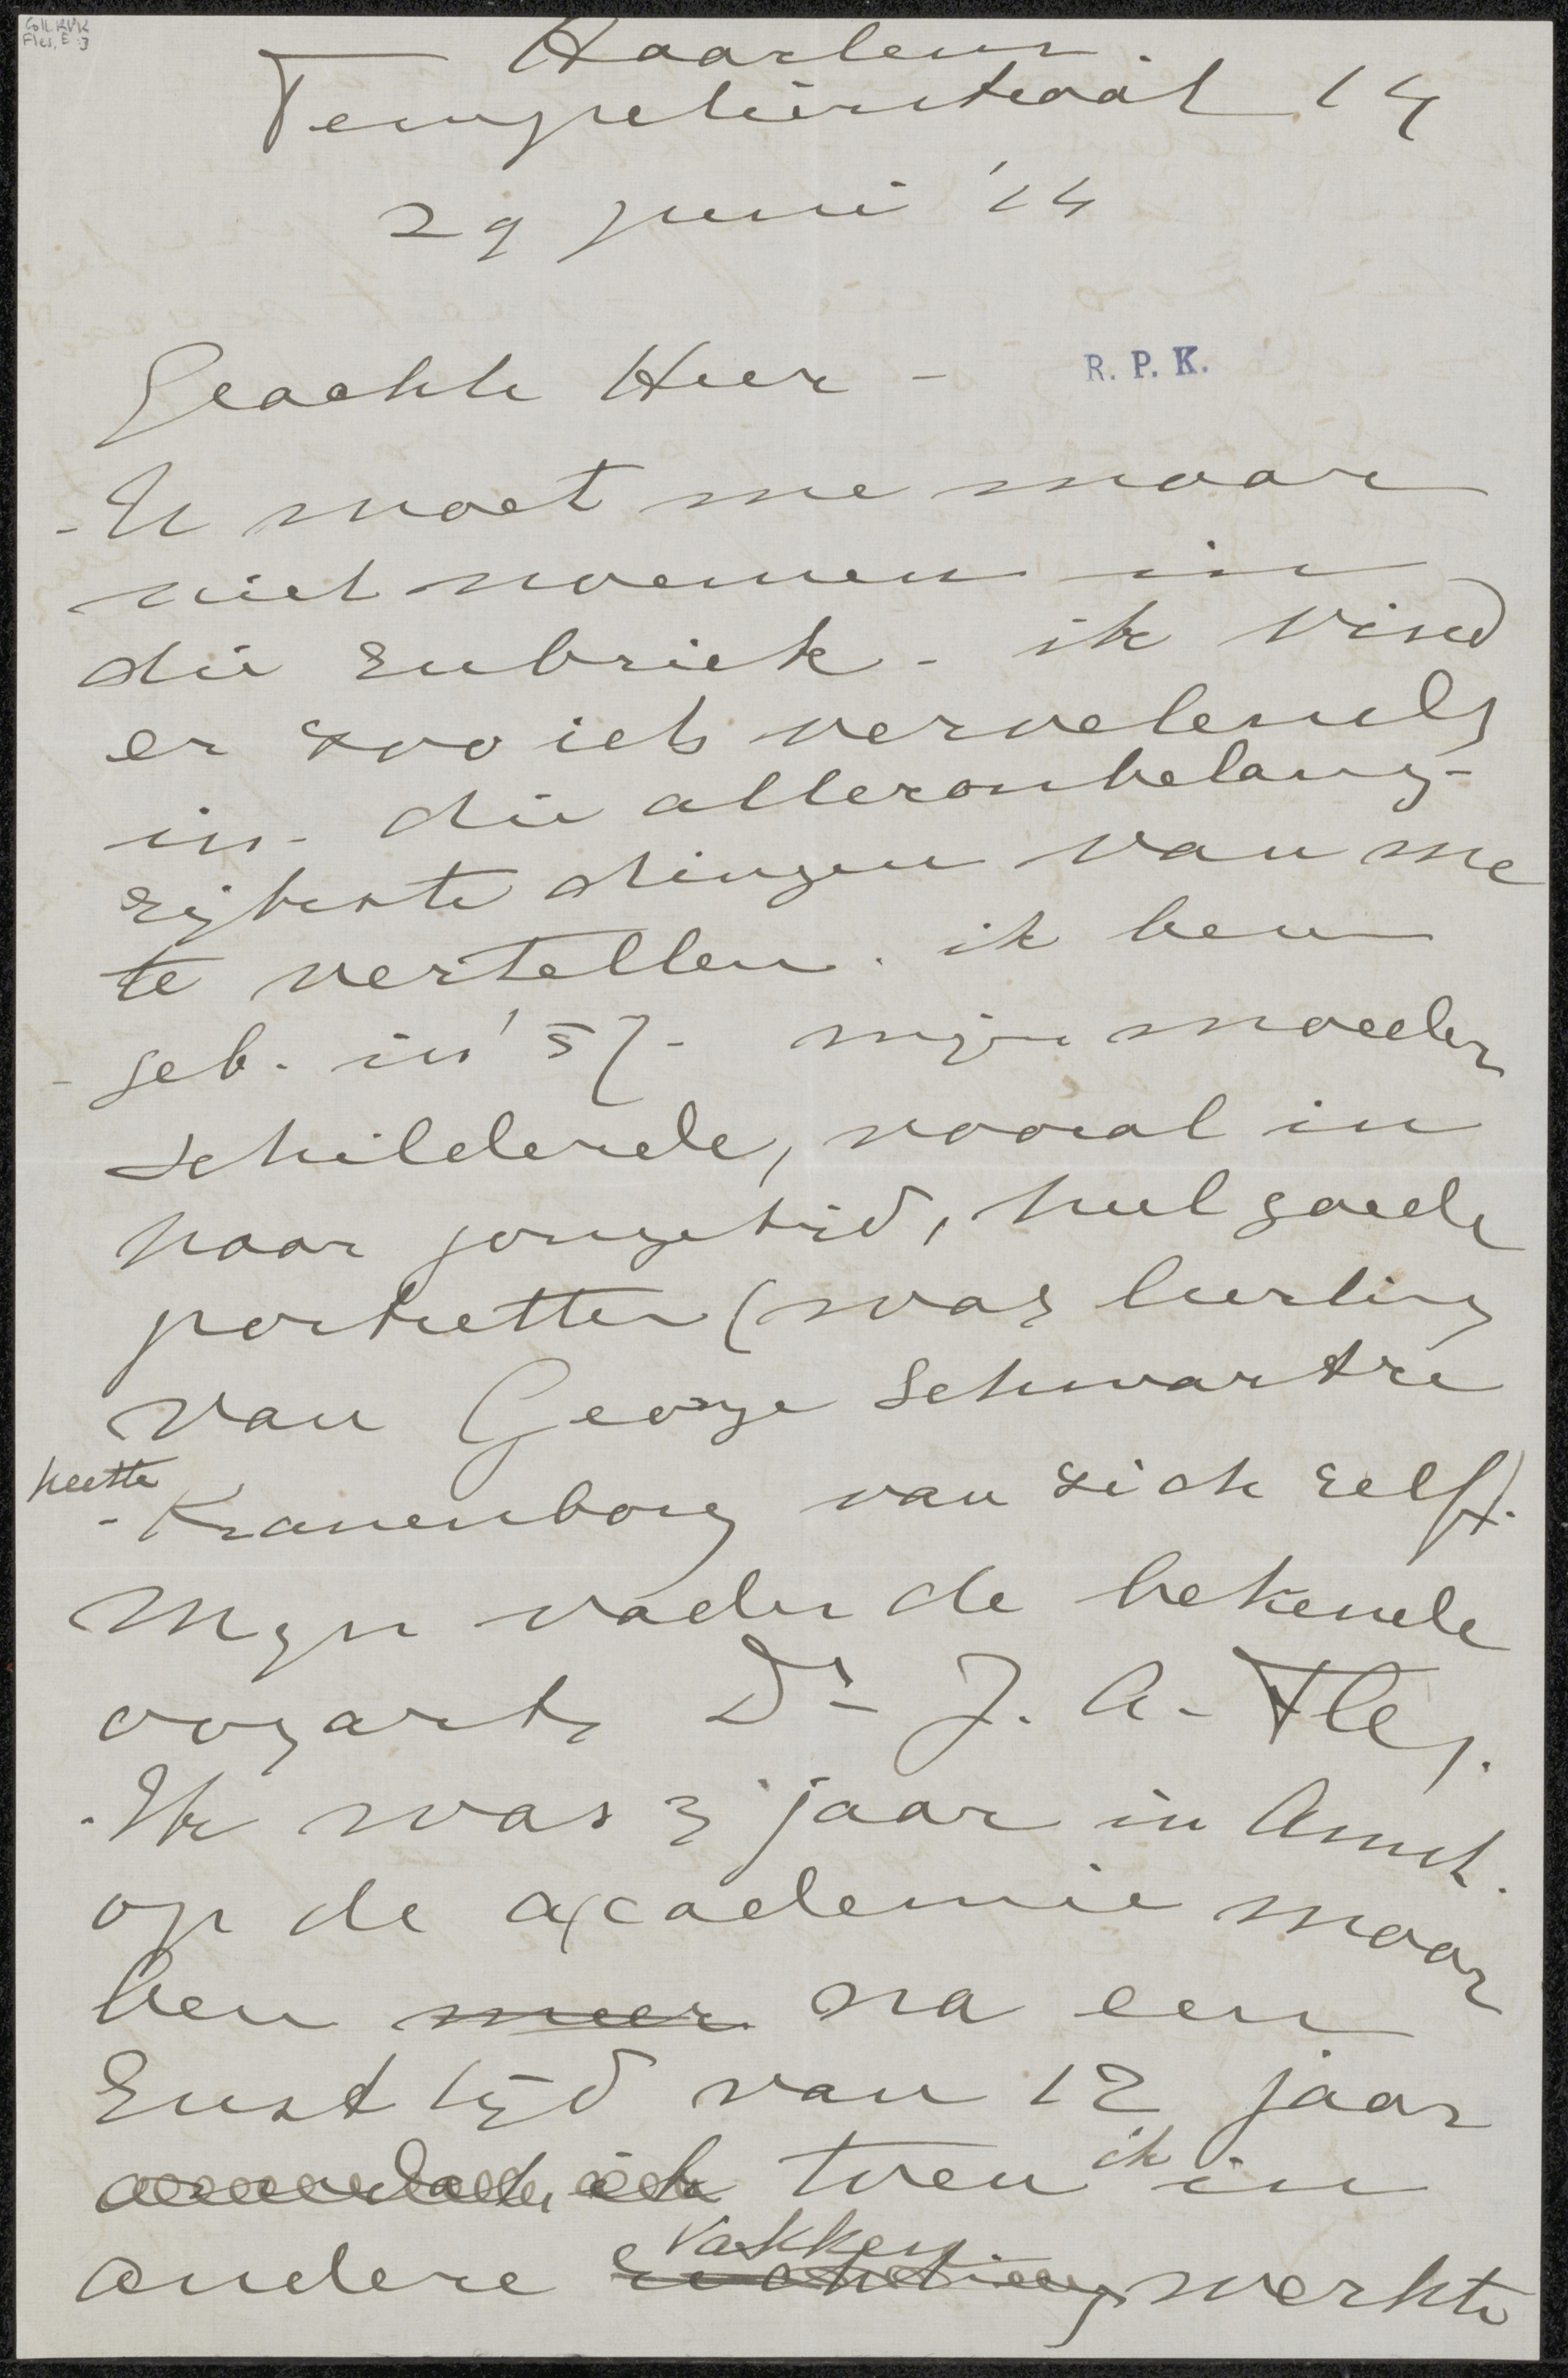 Coll. RPK
Fles, E 3
Haarlem.
Tempelierstraat 14
29 juni '14
R. P. K.
Geachte Heer -
- U moet me maar
niet noemen in
die rubriek - ik vind
er zoo iets vervelends
in - die alleronbelang-
rijkste dingen van me
te vertellen. ik ben
- geb. in '57 - mijn moeder
schilderde, vooral in
haar jonge tijd, heel goede
portretten (was leerling
van George Schwartze
heette
- Kranenborg van zich zelf).
Mijn vader de bekende
oogarts Dr J. A. Fles.
. Ik was 3 jaar in Amst.
op de academie maar
ben meer na een
rust tijd van 12 jaar
omdat ik toen ik in
vakken
andere richting werkte